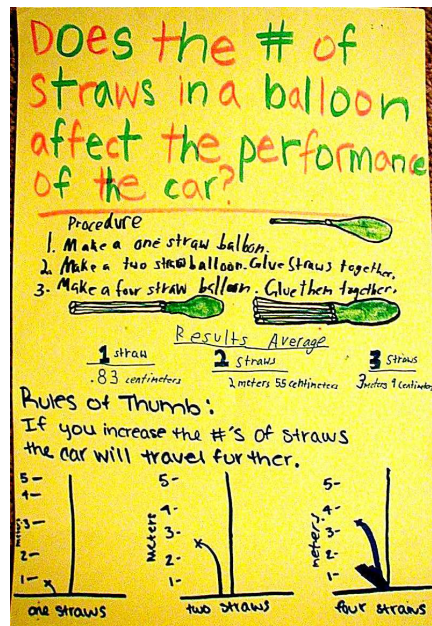 Does the # of
straws in a balloon
affect the performance
of the car?
Procedure
1. Make a one straw balloon.
2. Make a two straw balloon. Glue Straws together.
3. Make a four straw balloon. Glue them together.
Results Average
1 straw
.83 centimeters
2 straws
2 meters 55 centimeters
3 straws
3 meters 9 centimeters
Rules of Thumb:
If you increase the #'s of straws
the car will travel further.
5-
4-
3-
2-
1-
meters
one straws
5-
4-
3-
2-
1-
Meters
two straws
5-
4-
3-
2-
1-
meters
four straws